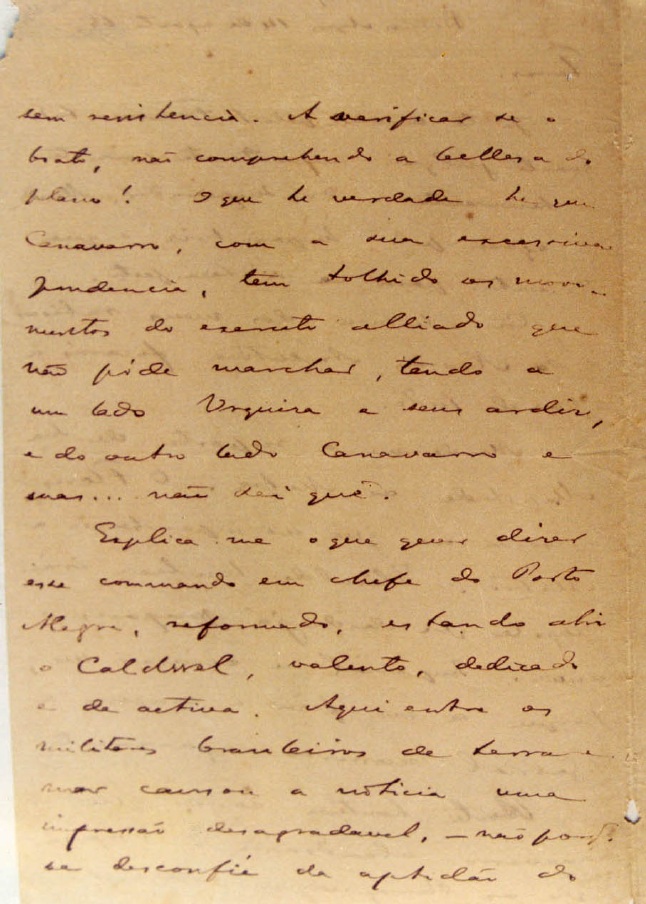 sem resistencia. A verificar se o
boato, não comprehendo a bellesa do
plano! O que he verdade he que
Canavarro, com a sua excessiva
prudencia, tem tolhido os movi-
mentos do exercito alliado que
não póde marchar, tendo a
um lado Urquiza e seus ardis,
e do outro lado Canavarro e
mas... não sei que.
Explica-me o que quer diser
esse commando em chefe do Porto
Alegre, reformado, estando ahi
o Caldwel, valente, dedicado
e de activa. Aqui entre os
militares brasileiros de terra e
mar causou a noticia uma
impressão desagradavel, – não porq.
se desconfie da aptidão do